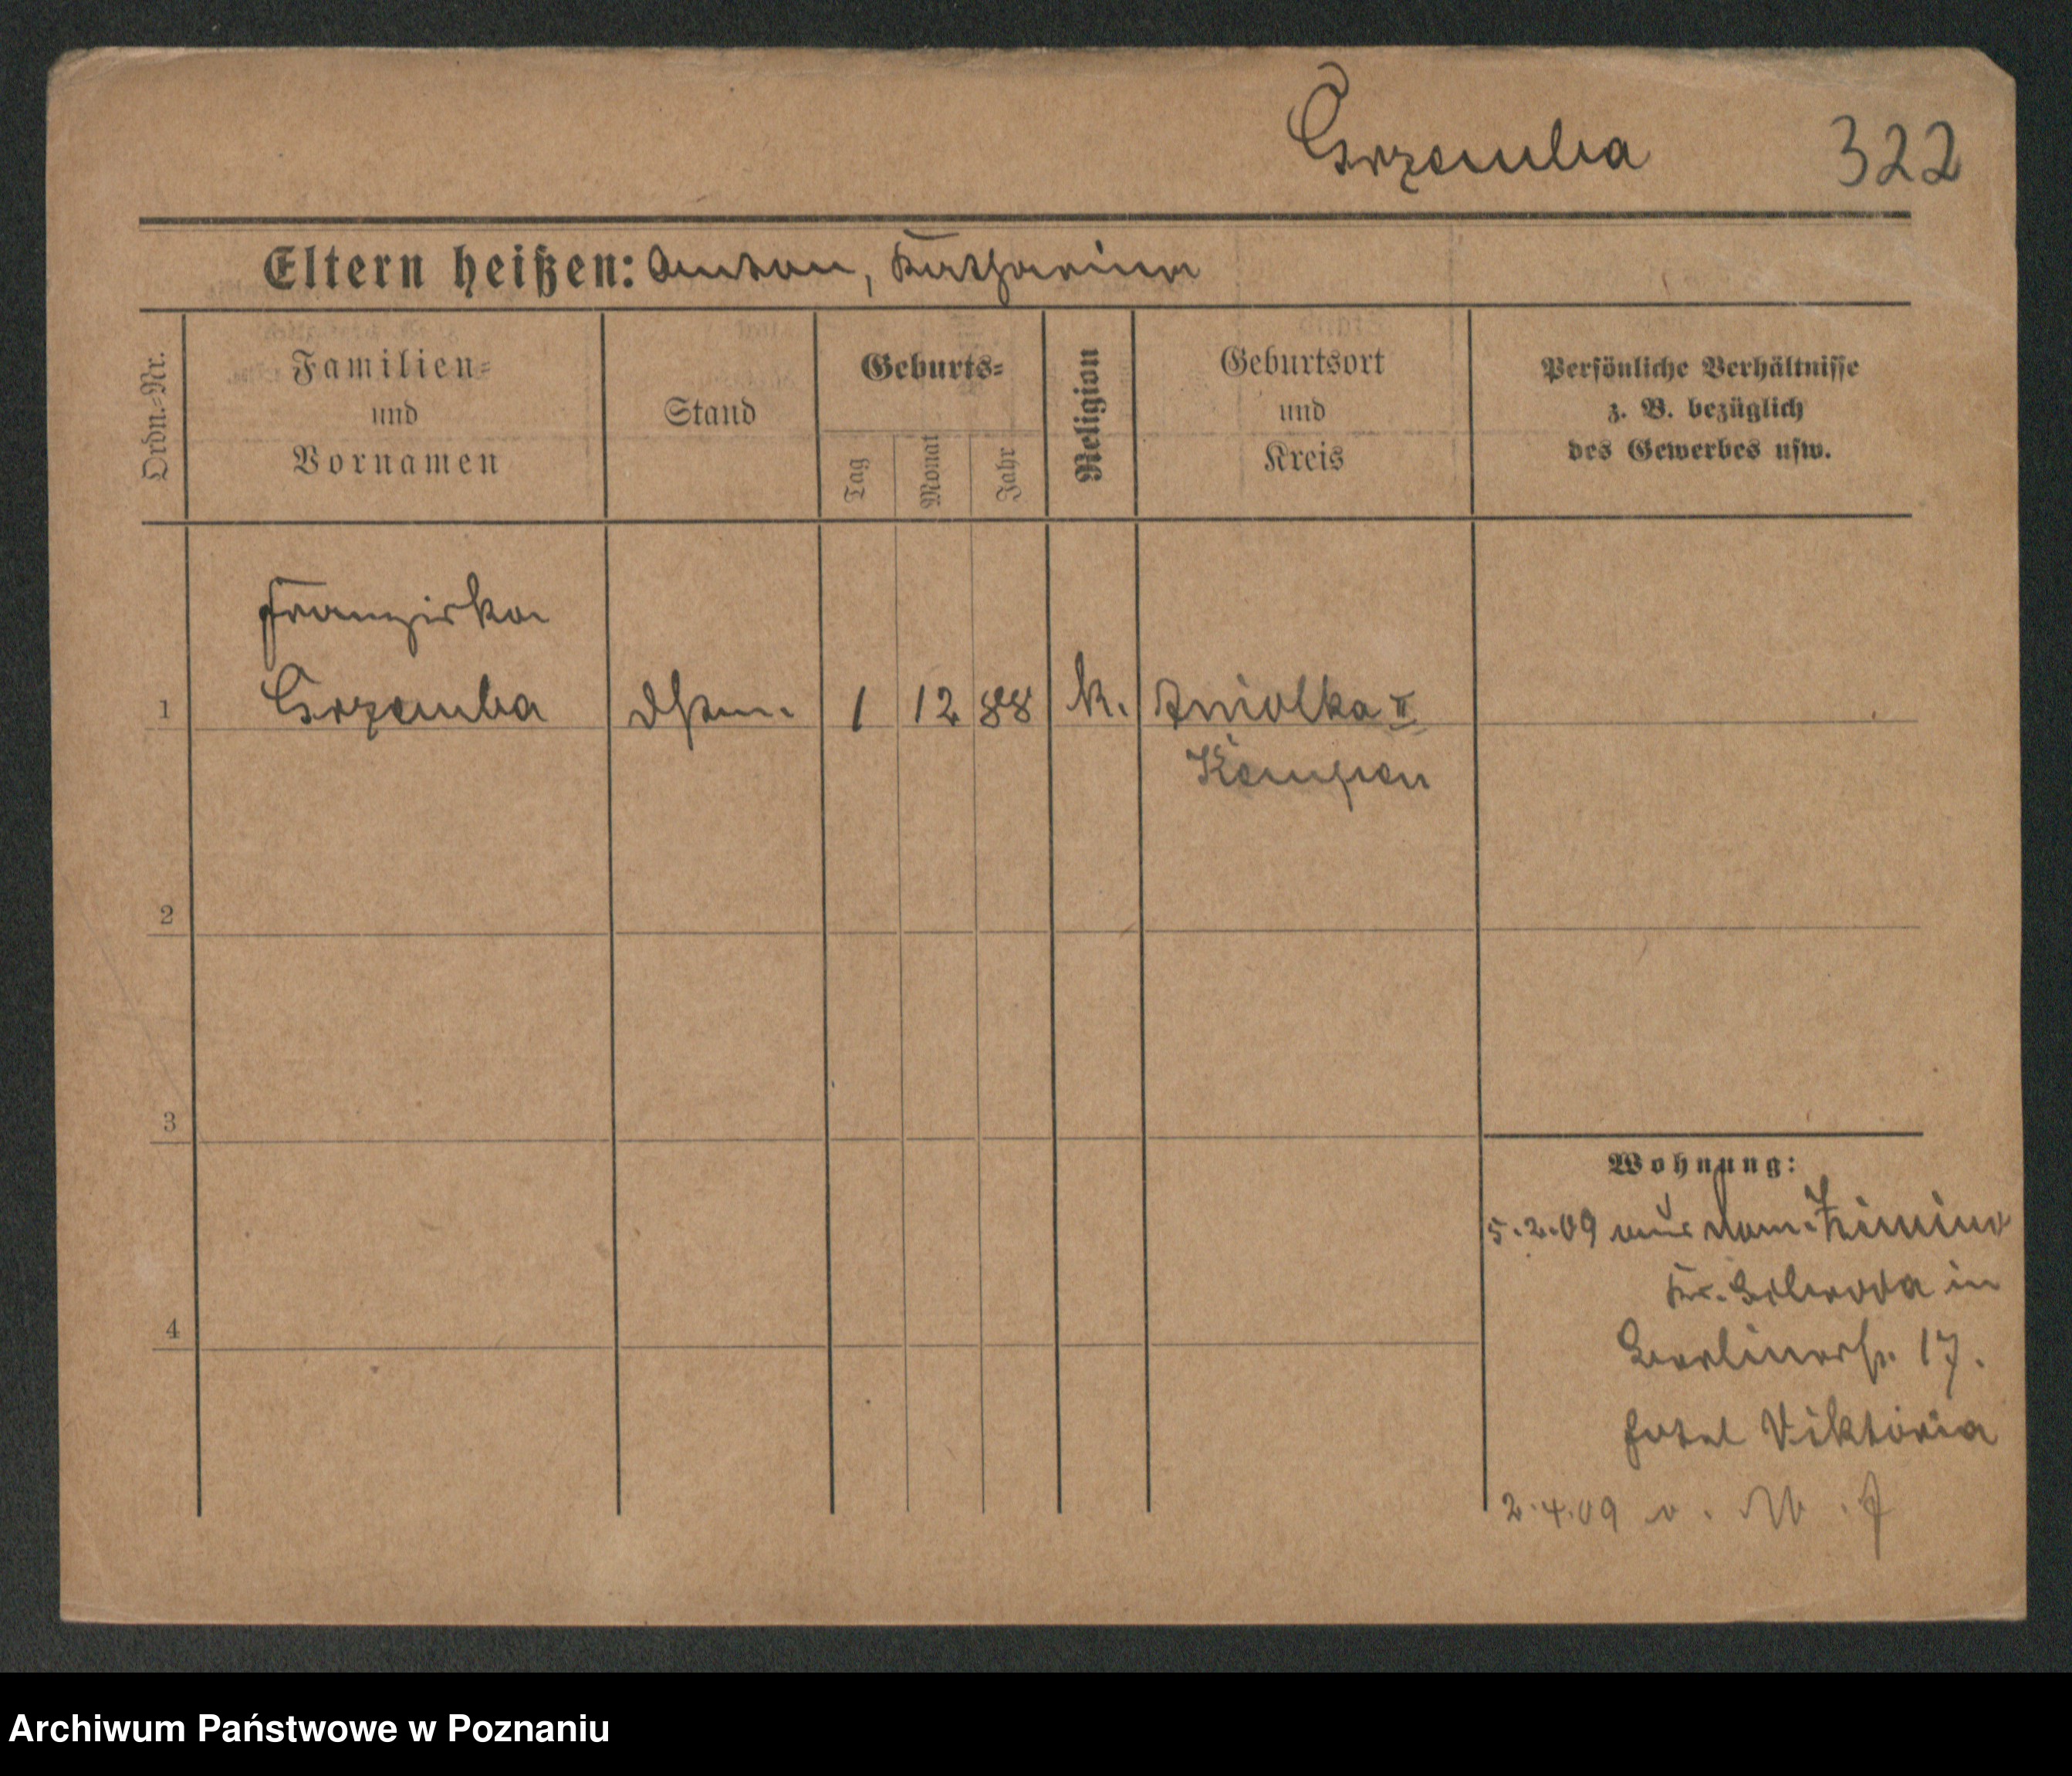 Grzemba 322
Eltern heißen: Anton, Katharina
Ordn.-Nr.
Familien-
und
Vornamen
Stand
Geburts-
Tag
Monat
Jahr
Religion
Geburtsort
und
Kreis
Persönliche Verhältnisse
z. B. bezüglich
des Gewerbes usw.
Franziska
1 Grzemba 1 12 88 k. Aniolka II
Kempen
2
3
4
Wohnung:
5.2.09 aus Dom.
Kr. in
Berlinerstr. 17.
Hotel Viktoria
2.4.09